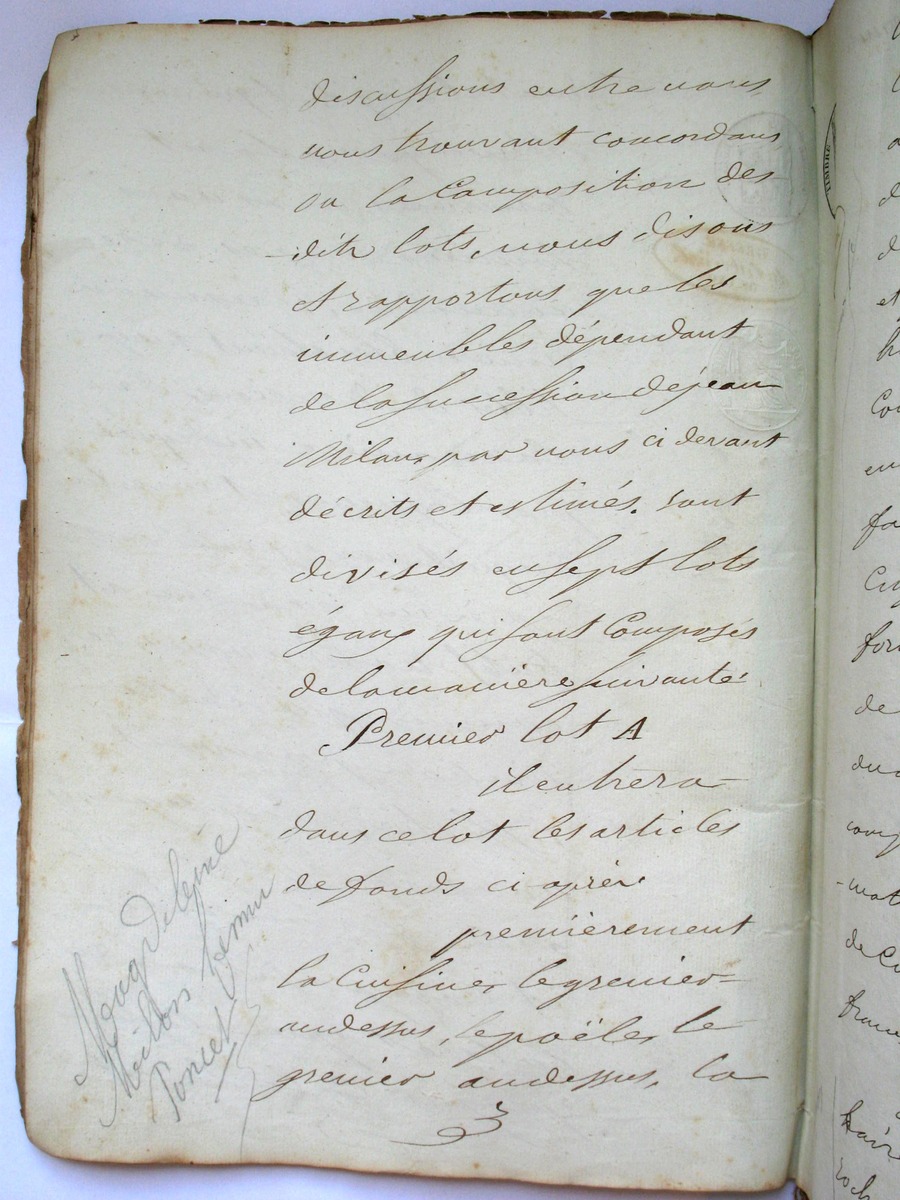 discussions entre nous
nous trouvant concordans
en la Composition des
dits lots, nous disons
et rapportons que les
immeubles dépendant
de la succession de jean
Milan, par nous ci devant
décrits et estimés. sont
divisés en sept lots
égaux qui sont Composés
de la manière suivante:
Premier lot A
il entrera
dans ce lot les articles
de fonds ci après
premièrement
la Cuisine, le grenier
audessus, le poële, le
grenier audessus, la
3
Magdeleine
Milan femme
Poncet
TIMBRE
et
de
de